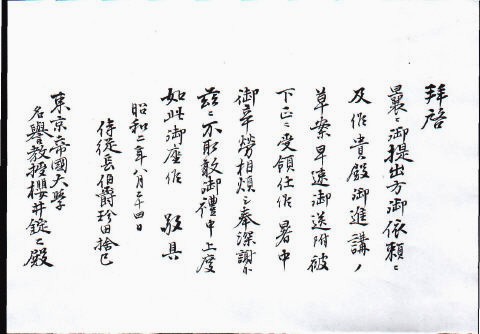 拝啓
曩ニ御提出方御依頼ニ
及候貴殿御進講ノ
草案早速御送附被
下正ニ受領仕候 暑中
御辛労相煩シ奉深謝候
茲ニ不取敢御禮申上度
如此御座候 敬具
昭和二年八月二十四日
侍従長伯爵珍田捨巳
東京帝國大學
名譽教授櫻井錠二殿